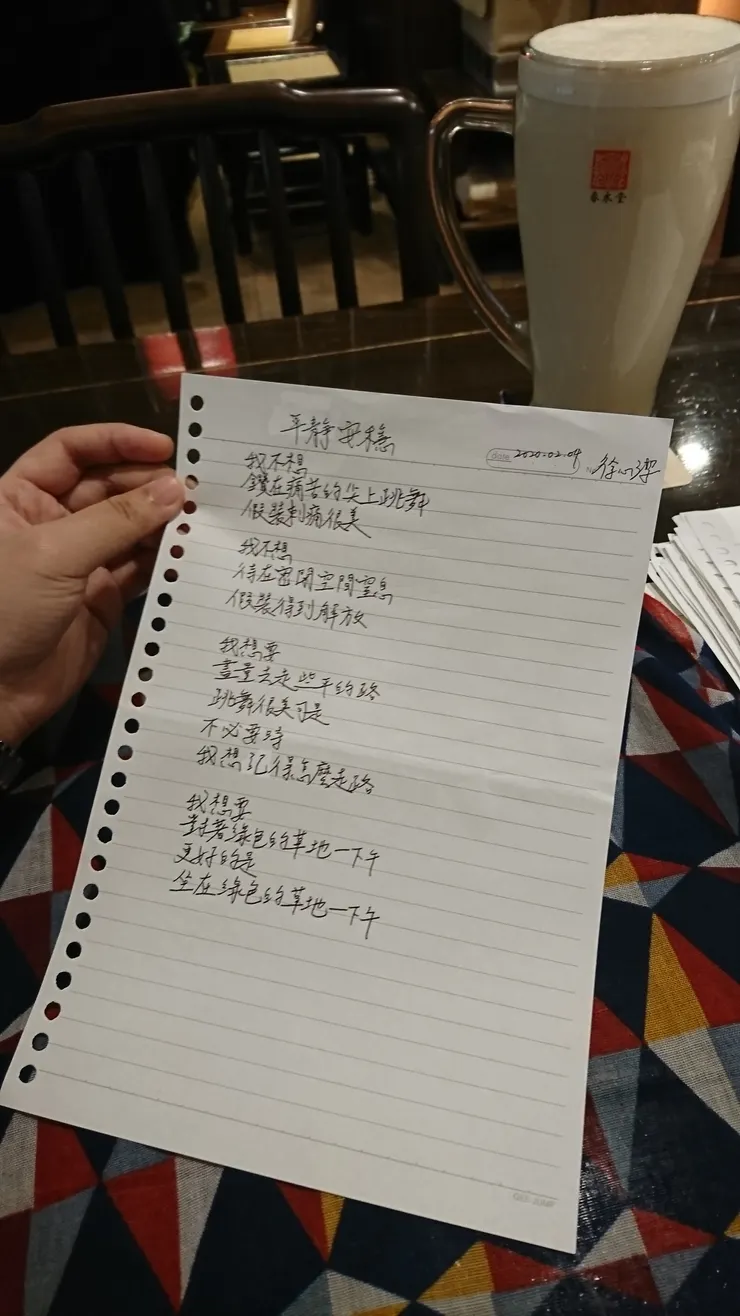 春水堂
平靜安穩
date 2020.02.09
徐心潔
我不想
鑽在痛苦的尖上跳舞
假裝刺痛很美
我不想
待在密閉空間窒息
假裝得到解放
我想要
盡量去走些平的路
跳舞很美可是
不必要時
我想記得怎麼走路
我想要
對著綠色的草地一下午
更好的是
坐在綠色的草地一下午